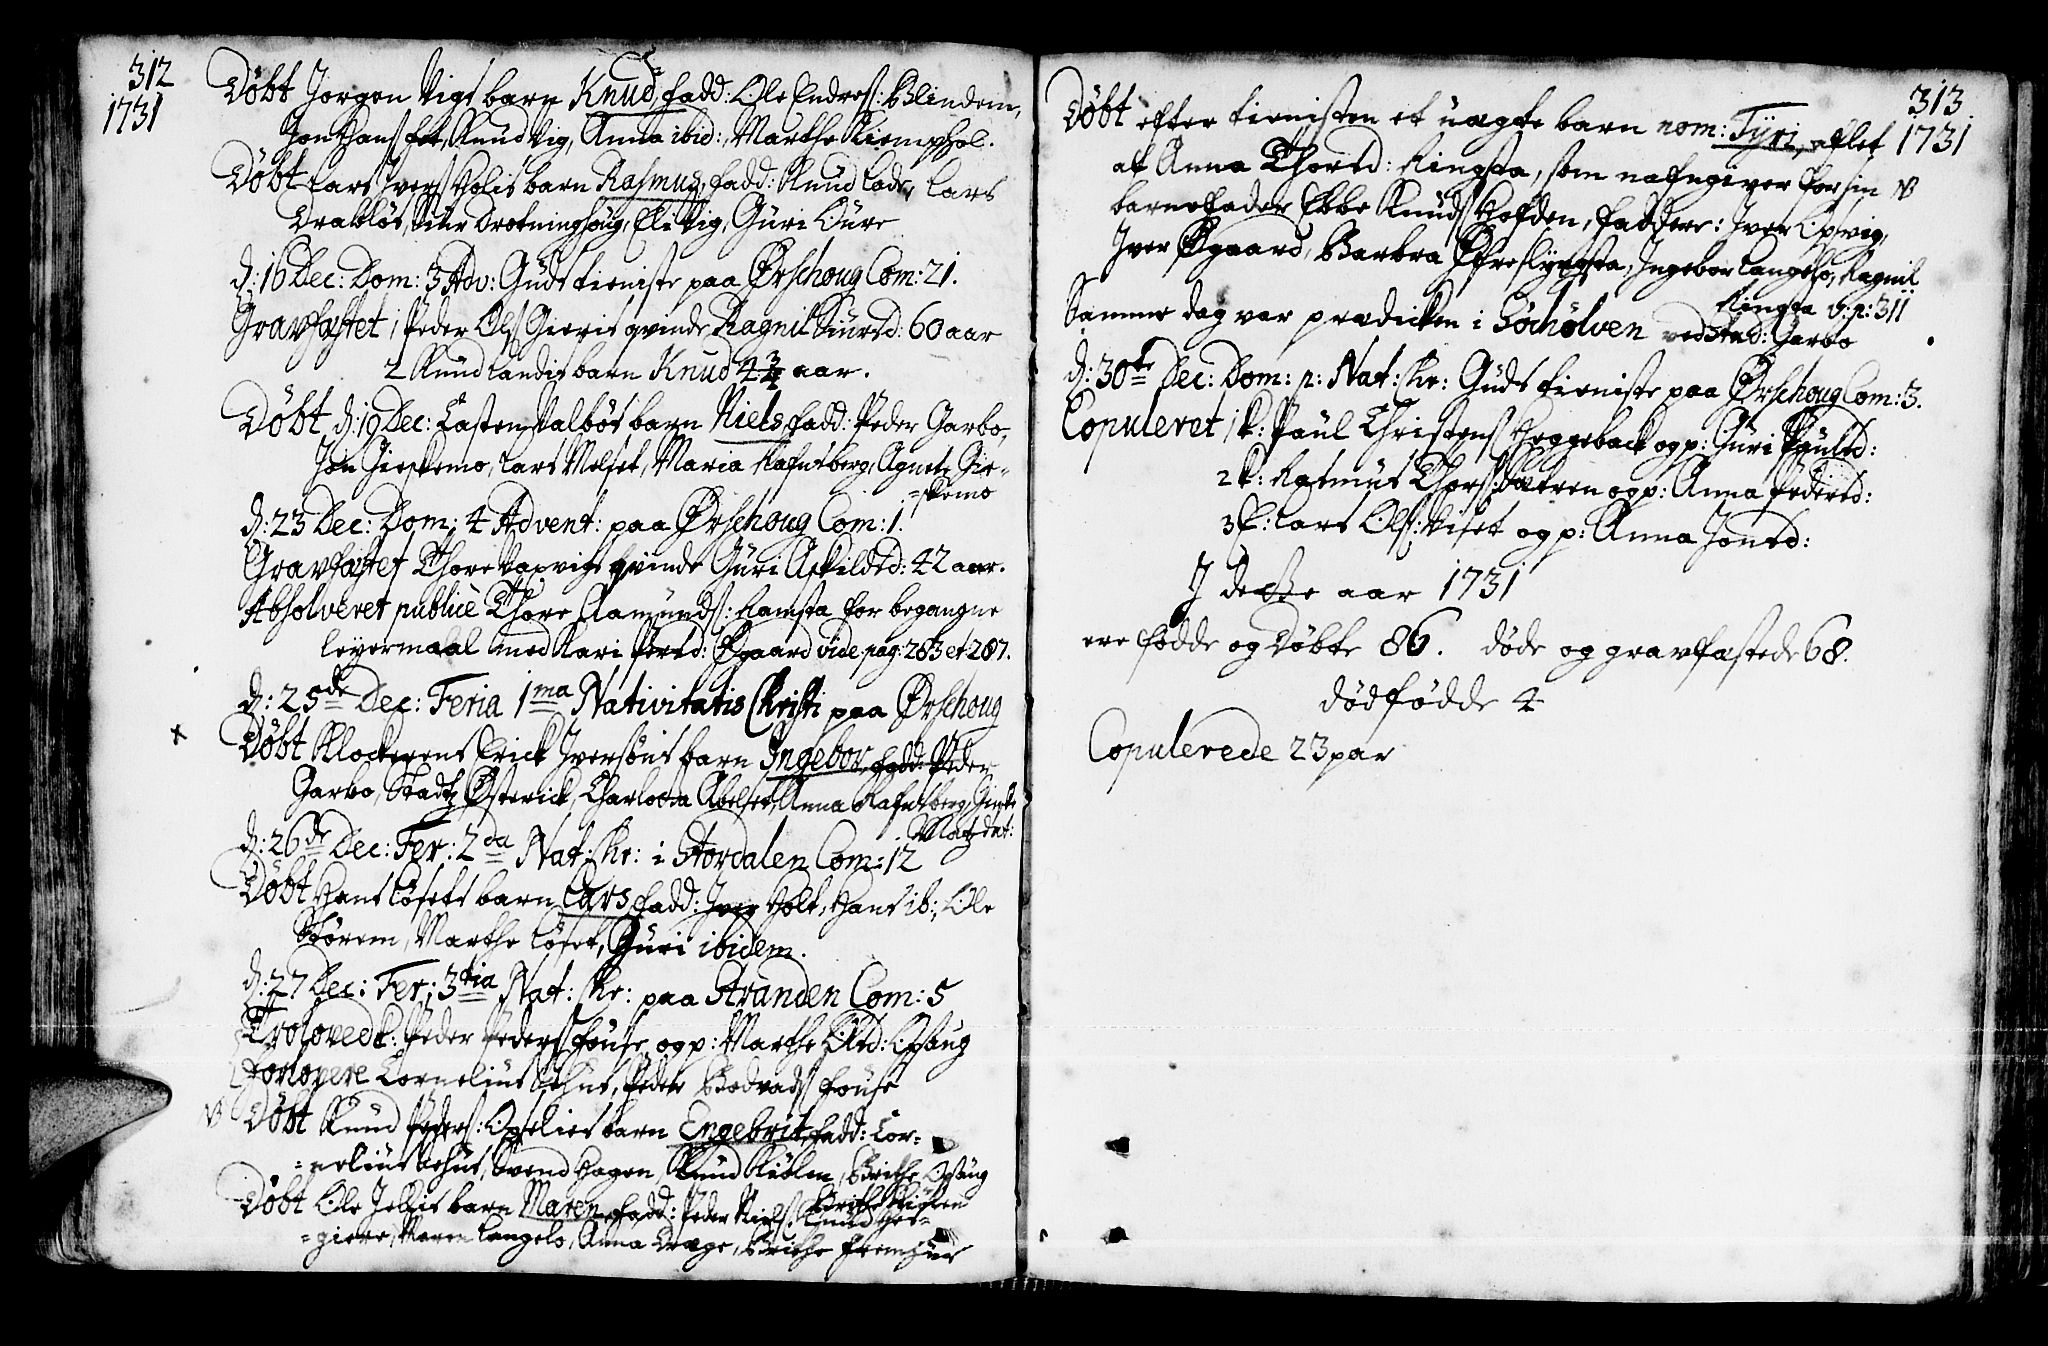 312
1731
Døbt Jørgen Vigs barn Knud, fadd: Ole Endres: Blindem,
Jon Hans: Fet, Knud Vig, Anna ibid:, Marthe Kiemphol.
Døbt Lars Ivers: Holis barn Rasmus, fadd: Knud Lade, Lars
Drabløs, Siur Drotninghoug, Eli Vig, Guri Ure
d: 16 Dec: Dom: 3 Adv: Guds tieniste paa Ørschoug Com: 21.
Gravfæstet 1 Peder Ols: Gieris qvinde Ragnil Siursd: 60 aar
2 Knud Landis barn Knud 4 3/4 aar.
Døbt d: 19 Dec: Casten Valbøs barn Niels, fadd: Peder Garbo,
Jon Gieskemo, Lars Melset, Maria Rafnsberg, Agnete Gie-
=skemo
d: 23 Dec: Dom: 4 Advent: paa Ørschoug Com: 1.
Gravfæstet Thore Vaxvigs qvinde Guri Askildsd: 42 aar.
Absolveret publicè Thore Aamunds: Ramsta for begangne
leyermaal med Kari Persd: Øgaard vide pag: 283 et 287.
d: 25de Dec: Feria 1ma Nativitatis Christi paa Ørschoug
Døbt Klockerens Erick Iversøns barn Ingebor, fadd: Peder
Garbo, Stadtz Østerick, Charlotta Abelset, Anna Rafnsberg,
d: 26de Dec: Fer: 2da Nat: Chr: i Stordalen Com: 12
Døbt Hans Løsets barn Lars, fadd: Hole, Hans ib:, Ole
Størem, Marthe Løset, Guri ibidem.
d: 27 Dec: Fer: 3tia Nat: Chr: paa Stranden Com: 5
Troloved k: Peder Peders: Fouse og p: Marthe Olsd: Opsaug
Forlovere Cornelius Dehus, Peder Bodvads: Fouse
Døbt Knud Peders: Opelies barn Engebrit, fadd: Cor-
=nelius Dehus, Svend Hagen, Knud Kiølen, Brithe Opsaug
Brithe Kiølen
Døbt Ole Jellis barn Maren, fadd: Peder Niels:, Knud Her-
=giere, Maren Langelo, Anna Drage, Brithe Fremhus
313
1731
Døbt efter tienisten et uægte barn nom: Tyri, aflet
af Anna Thorsd: Ringsta, som nafngiver for sin
barnefader Ebbe Knuds: Hofden, faddere: Iver Opsvig,
Iver Øgaard, Barbra Øfreslyngsta, Ingebor Langelo, Ragnil
Ringsta v: p: 311
Samme dag var prædicken i Søeholven ved Stud: Garbo
d: 30te Dec: Dom: p: Nat: Chr: Guds tieniste paa Ørschoug Com: 3.
Copuleret 1 k: Paul Christens: Heggeback og p: Guri Paulsd:
2 k: Rasmus Thors: Sætren og p: Anna Pedersd:
3 k: Lars Ols: Viset og p: Anna Jonsd:
I dette aar 1731
ere fødde og døbte 86. døde og gravfæstede 68.
dødfødde 4
Copulerede 23 par